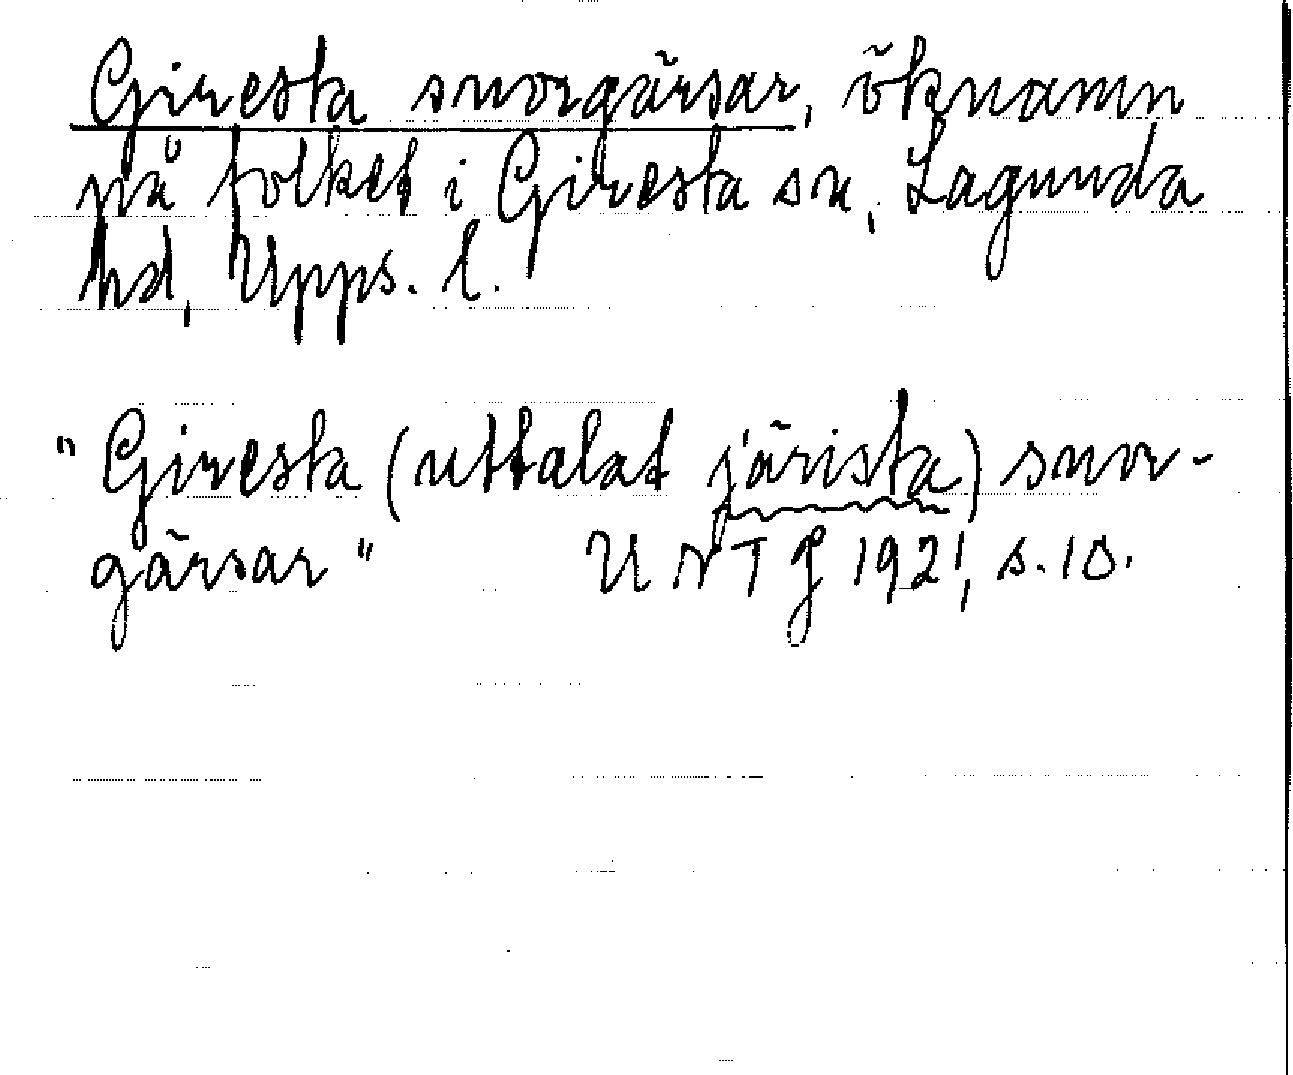 Giresta snorgärsar, öknamn
på folket i Giresta sn, Lagunda
hd, Upps. l.
"Giresta (uttalat järista) snor-
gärsar" UNTJ 1921, s. 10.